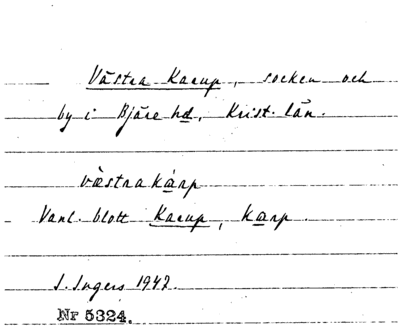 Västra Karup, socken och
by i Bjäre hd, Krist. län.
västra kárp
Vanl. blott Karup, karp.
I. Ingers 1942.
Nr 5324.